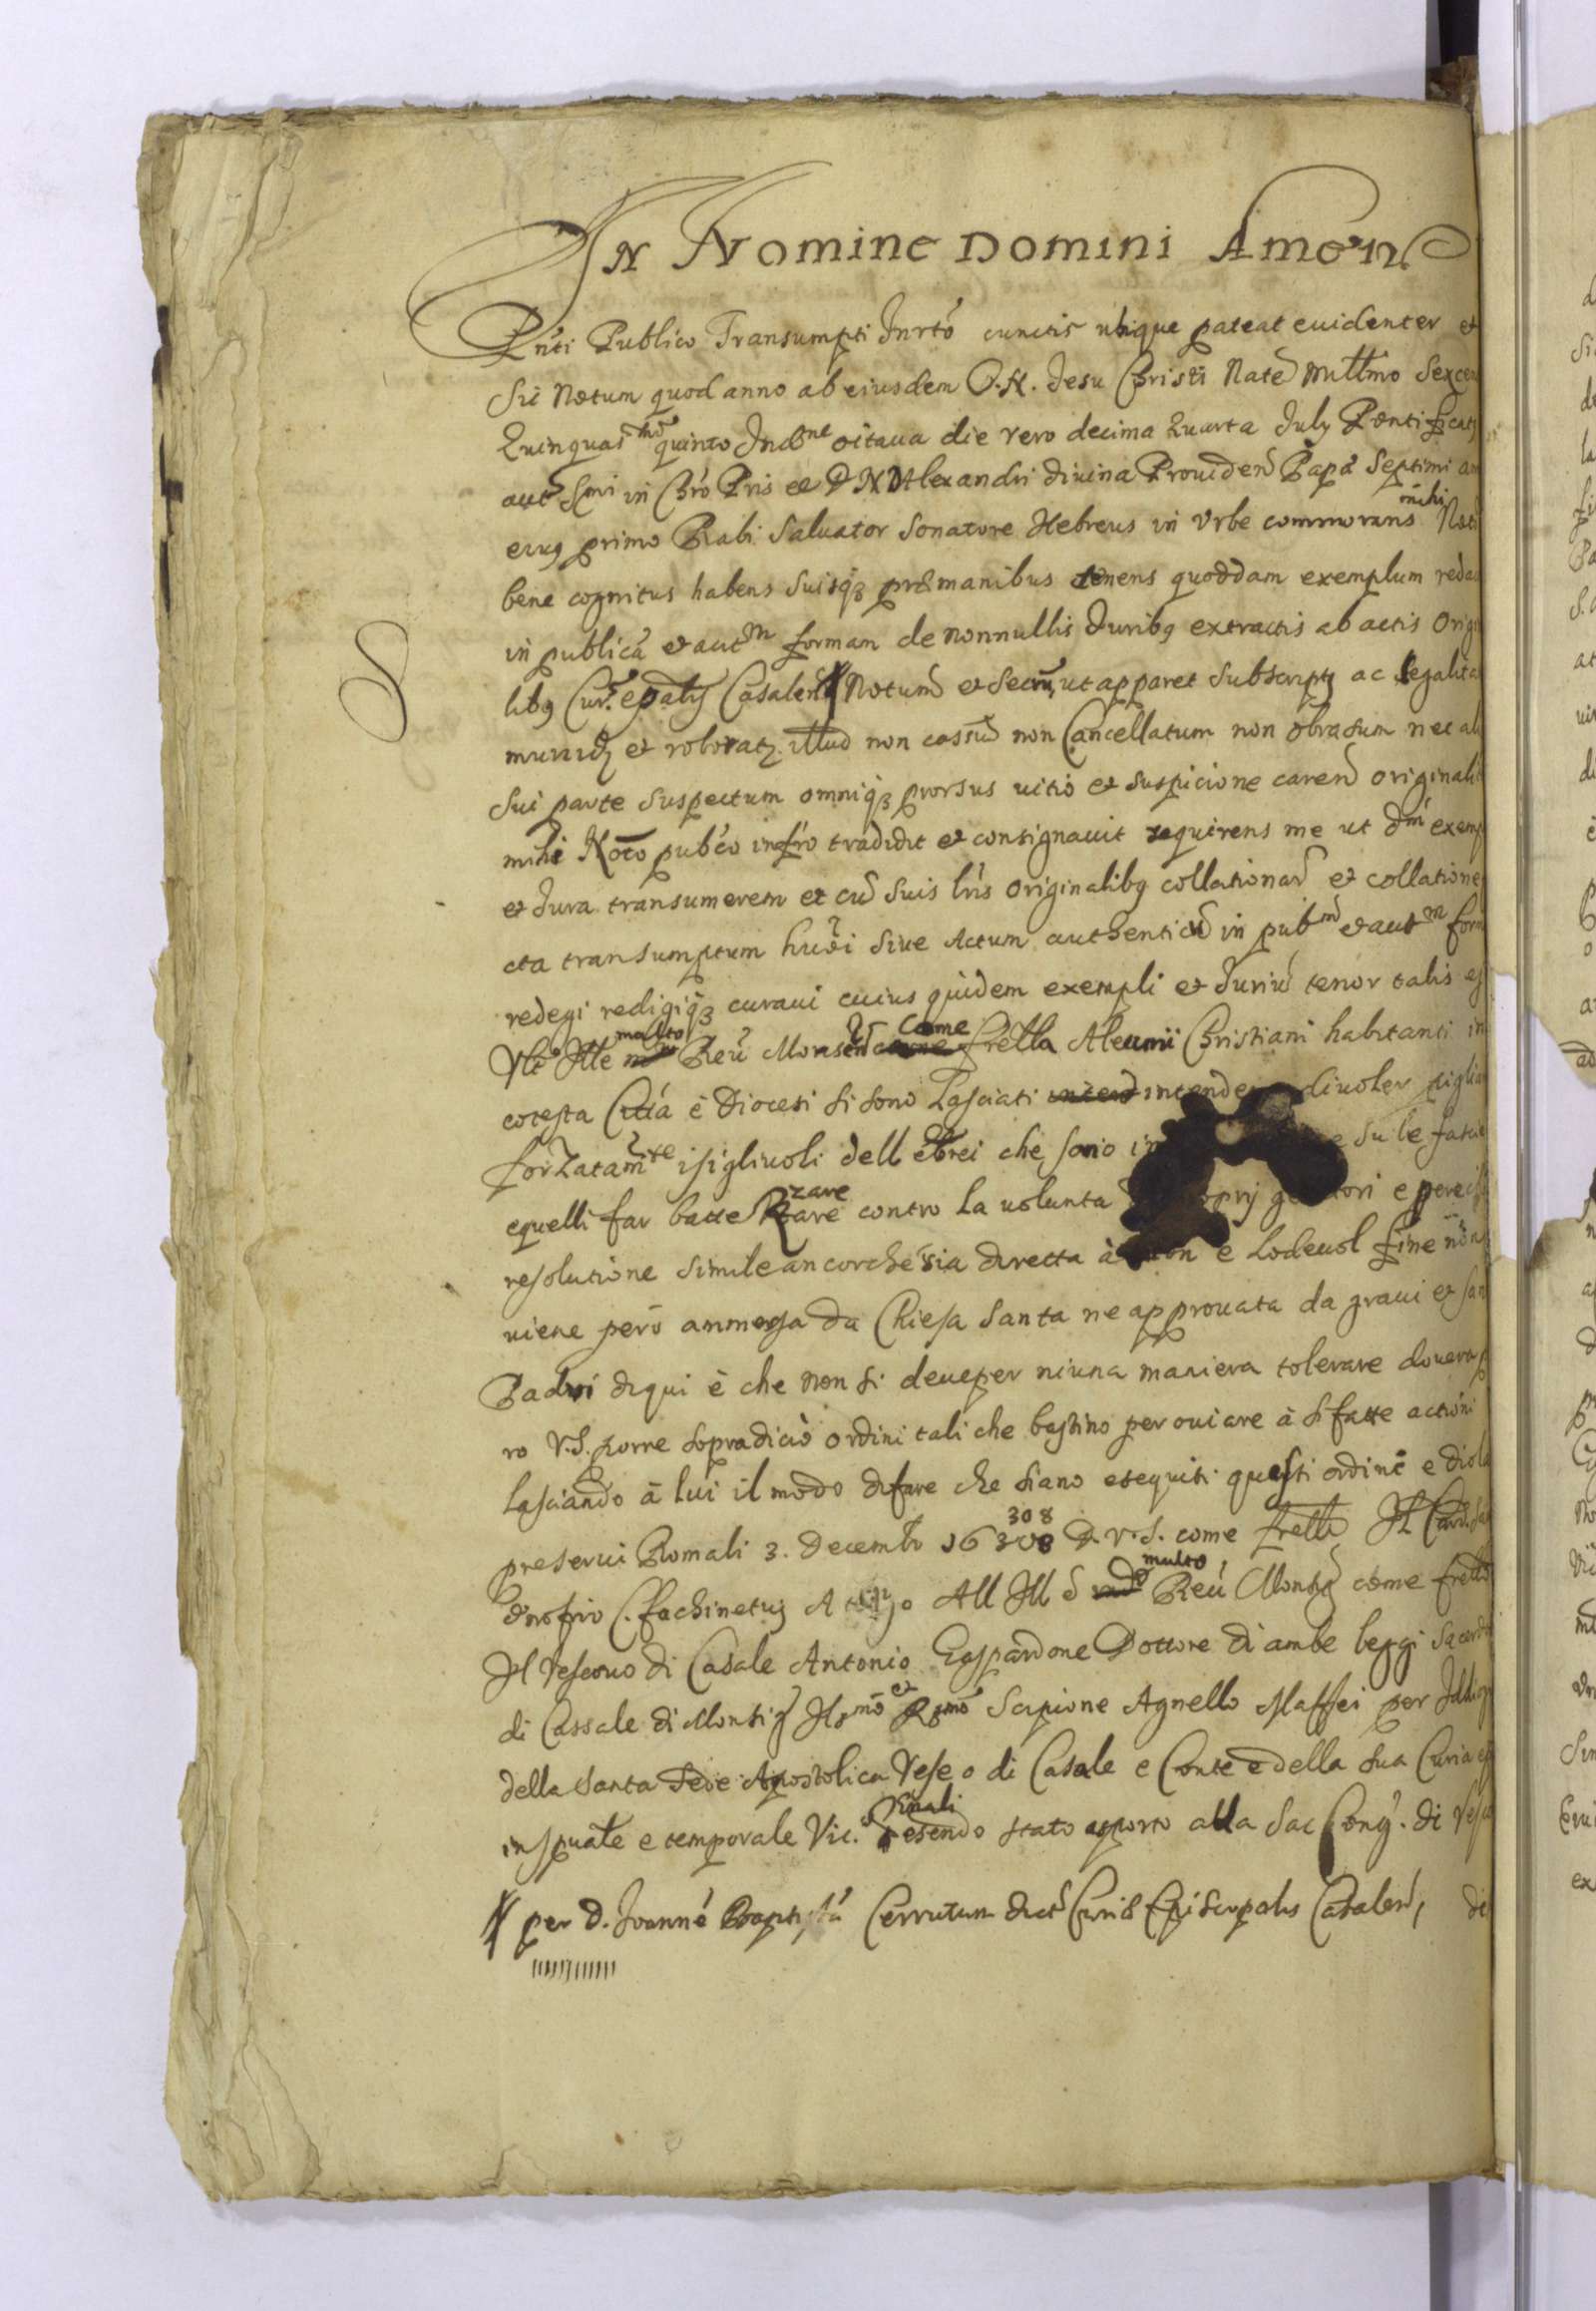 In Nomine Domini Amen
Pnti Publico Transumpti Inrto cunctis ubique pateat euidenter et
Sit Notum quod anno ab eiusdem D.N. Iesu Christi Nate Millmo Sexcen
Quinquas mo quinto Indne octaua die vero decima Quarta July Pontificatq
aut Smi in Chro Pris et D N D Alexandri diuina Prouiden Papæ Septimi an
eiuq primo Rabi Saluator Sonatore Hebreus in Vrbe commorans mihi Not
bene cognitus habens Suisqз præmanibus tenens quoddam exemplum reda
in publica et autm formam de nonnullis Juribq extractis ab actis Orig
libq Cur. epalis Casalen Notum et Secru, ut apparet Subscript ac legalita
munit et roborat illud non cassu non Cancellatum non abrasum nec al
Sui parte Suspectum omniqз prorsus uitio et Suspicione caren originali
mihi Noto pubco infro tradidit et consignauit requirens me ut dm exemp
et Iura transumerem et cu Suis lris originalibq collationar et collatione
cta transumptum huoi Siue Actum authenticu in pubm et autm form
redegi redigiqз curaui cuius quidem exempli et Juriu tenor talis es
Vlt Ille molto Reu Monsen Come frello Alcuni Christiani habitanti in
cotesta Città è Diocesi si sono Lasciati intendere diuoler piglia
forzatamte i figliuoli dell ebrei che sono in su le fascie
equelli far battezare contro la uolunta proprj genitori e perciò
resolutione simile ancorche sia diretta à e lodeuol fine non
uiene però ammessa da Chiesa Santa ne approuata da graui et san
Padri di qui è che non si deueper niuna maniera tolerare douera p
ro V.S. porre sopradiciò ordini tali che bastino per ouiare à si fatte actioni
lasciando à lui il modo difare che siano esequiti questi ordini e diola
preserui Romali 3. decembr 16 308 D. V.S. come frello Il Card.
d'nofrio C. fachinetus All Ill e multo Reu Monsig come frello
Il Vescouo di Casale Antonio Gaspardone Dottore di ambe leggi Sacerdo
di Cassale di Monsig Illmo et Rmo Scipione Agnello Maffei per Iddio
della Santa Sede Apostolica Vesc o di Casale e Conte e della sua Curia ep
inspuale e temporale Vic. Gnali esendo stato esporto alla Sac Cong. di Vesco
per D. Ioanne Baptista Cerrutum dict Curiæ Episcopalis Casalen, di